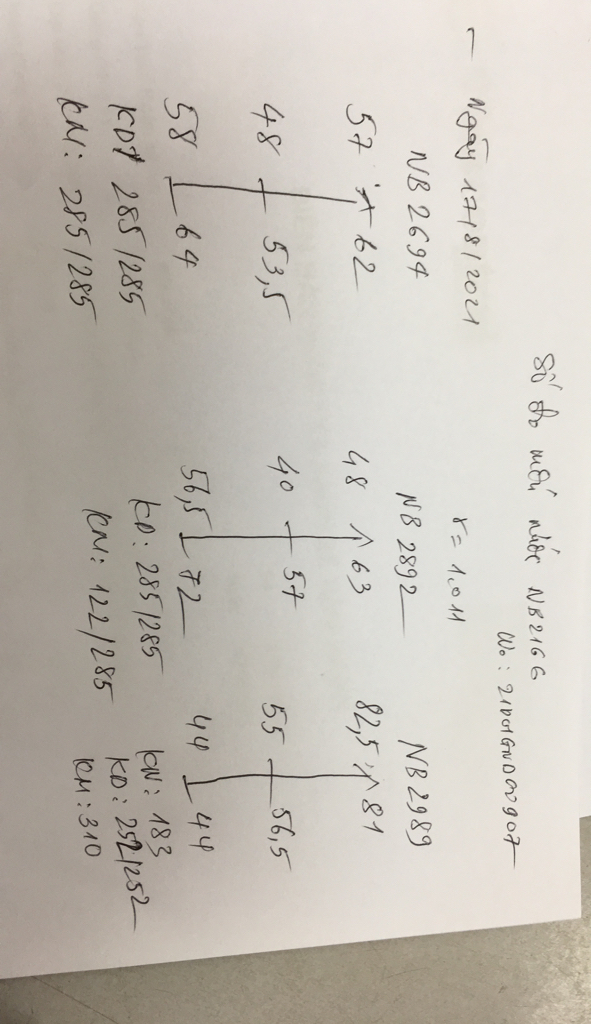 Số đo mớn nước NB2166
Wo: 21
- Ngày 17/8/2021
γ = 1.011
NB 2694
57 62
48 53,5
58 64
KĐ: 285/285
KN: 285/285
NB 2892
48 63
40 57
56,5 72
KĐ: 285/285
KN: 122/285
NB 2989
82,5 81
55 56,5
44 44
KN: 183
KĐ: 252/252
KM: 310